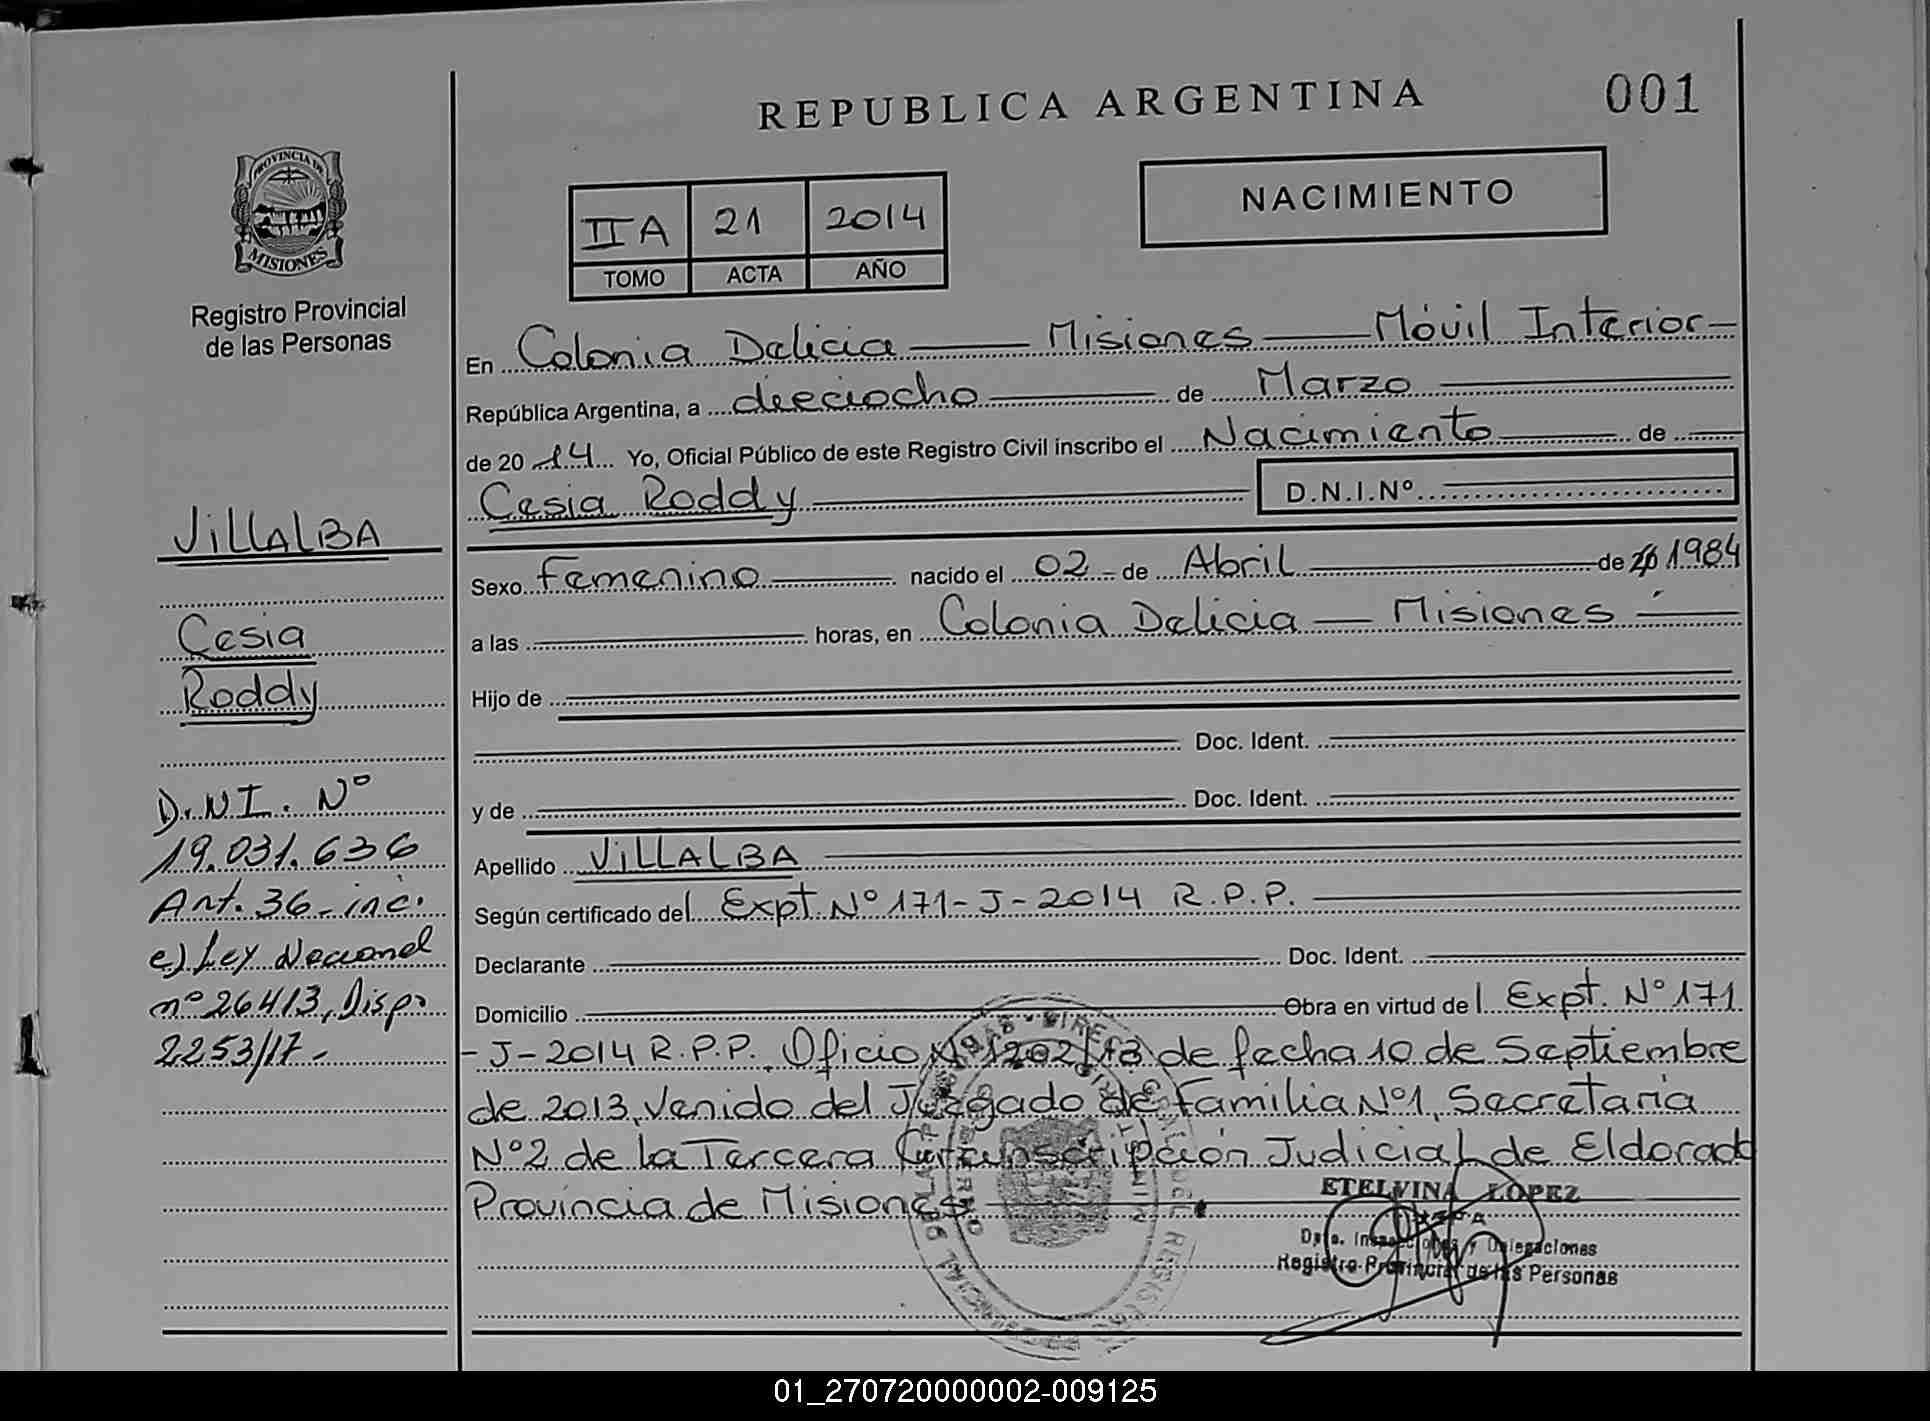 REPUBLICA ARGENTINA
001
PROVINCIA DE
MISIONES
Registro Provincial
de las Personas
IIA 21 2014
TOMO ACTA AÑO
NACIMIENTO
En Colonia Delicia — Misiones — Móvil Interior —
República Argentina, a dieciocho de Marzo
de 2014 Yo, Oficial Público de este Registro Civil inscribo el Nacimiento de
Cesia Roddy D.N.I.Nº
Sexo Femenino nacido el 02 de Abril de 1984
a las horas, en Colonia Delicia — Misiones —
Hijo de
Doc. Ident.
y de Doc. Ident.
Apellido VILLALBA
Según certificado del Expt. Nº 171-J-2014 R.P.P.
Declarante Doc. Ident.
Domicilio Obra en virtud del Expt. Nº 171
-J-2014 R.P.P. Oficio Nº 1202/13 de fecha 10 de Septiembre
de 2013, Venido del Juzgado de Familia Nº1, Secretaría
Nº2 de la Tercera Circunscripción Judicial de Eldorado
Provincia de Misiones
VILLALBA
Cesia
Roddy
D.N.I. Nº
19.031.636
Art. 36 - inc.
e) Ley Nacional
nº 26413, Disp.
2253/17-
ETELVINA LOPEZ
Dpto. Inspecciones y Delegaciones
Registro Provincial de las Personas
01_270720000002-009125